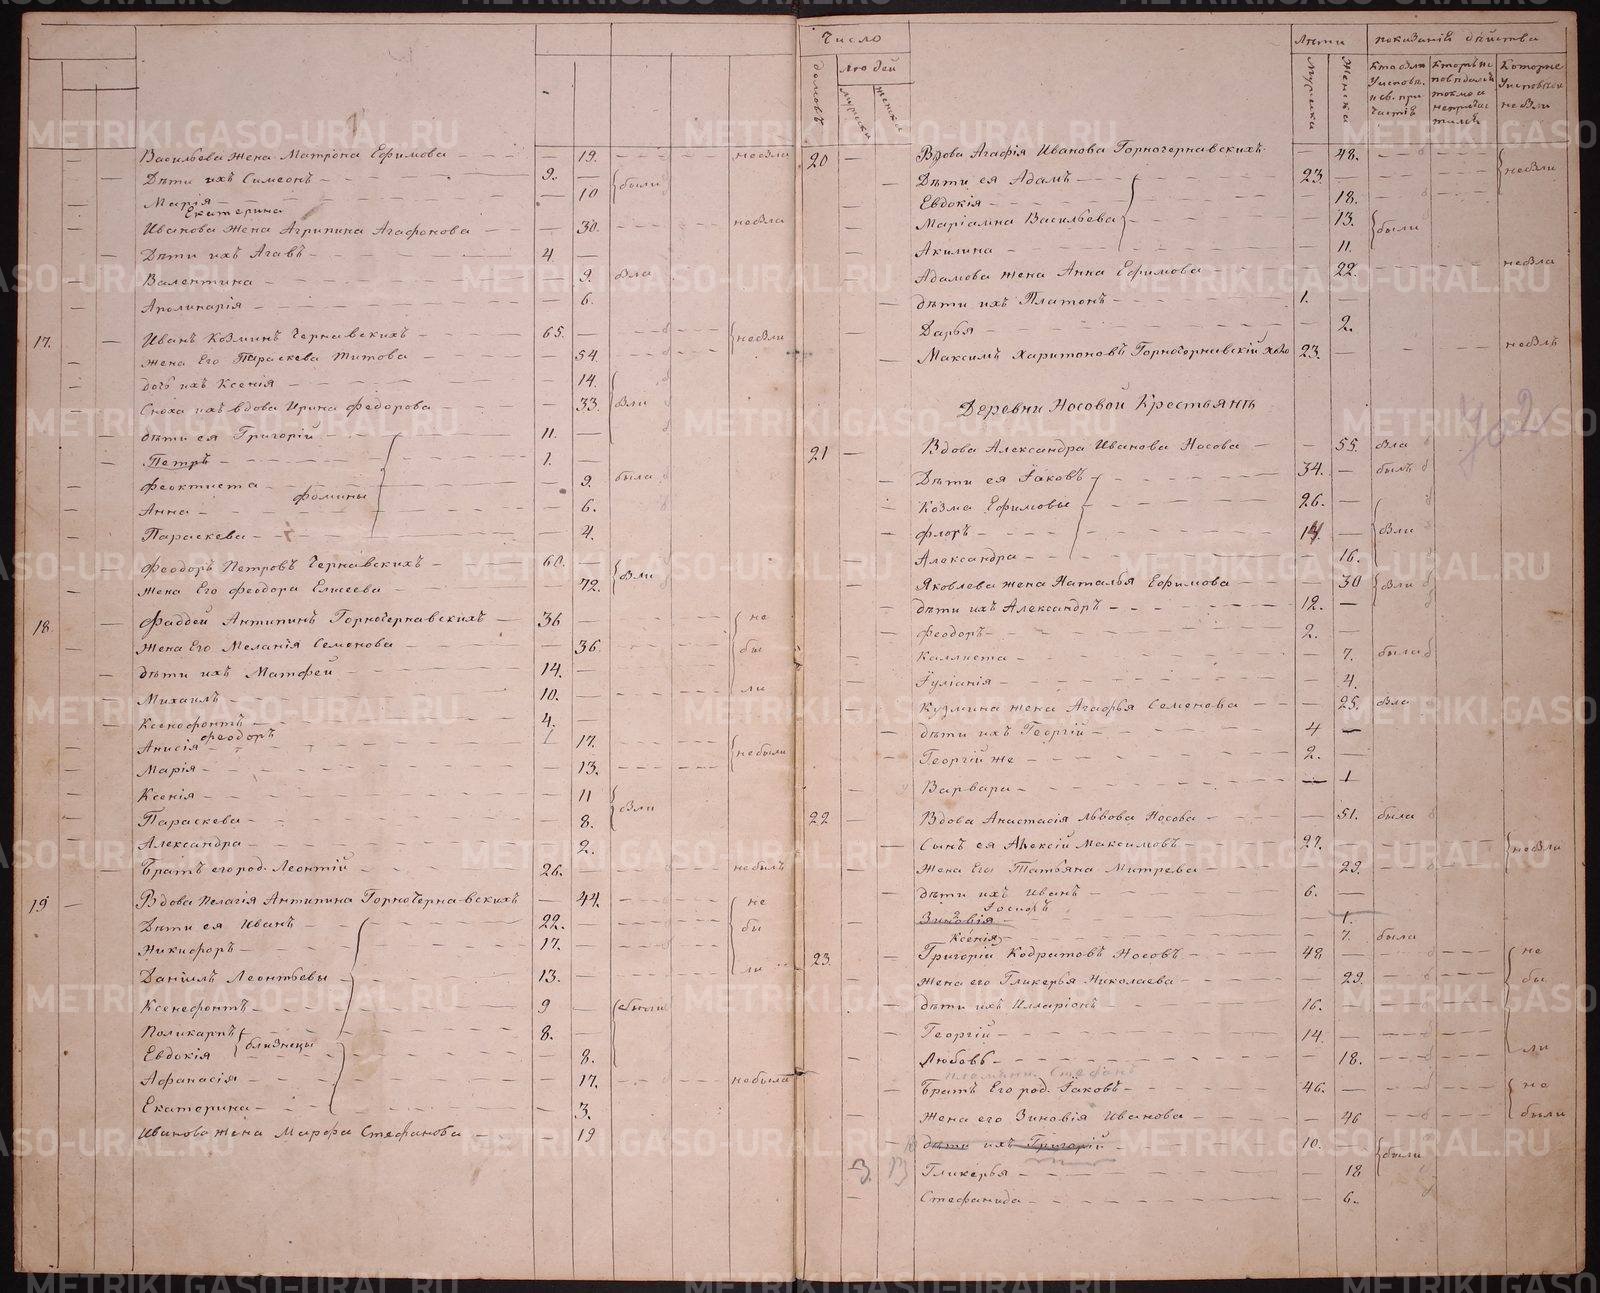 Васильева жена Матрона Ефимова 19. небыла
Дѣти ихъ Симеонъ 9. были
Марія 10
Екатерина
Иванова жена Агрипина Агафонова 30. небыла
Дѣти ихъ Агавъ 4
Валентина 9. была
Аполинарія 6.
17. Иванъ Козминъ Чернавскихъ 65. небыли
Жена Его Параскева Титова 54.
дочь ихъ Ксенія 14.
Сноха ихъ вдова Ирина Федорова 33. были
дѣти ея Григорій 11.
Петръ 1.
Феоктиста 9. была
Фомины
Анна 6.
Параскева 4.
Феодоръ Петровъ Чернавскихъ 60. были
Жена Его Феодора Елисеева 72.
18. Фаддей Антипинъ Горночернавскихъ 36 не
Жена Его Меланія Семенова 36. бы
дѣти ихъ Матфей 14. ли
Михаилъ 10.
Ксенофонтъ 4.
Феодоръ 1
Анисія 17. небыли
Марія 13.
Ксенія 11 были
Параскева 8.
Александра 2.
Братъ его род. Леонтій 26. небылъ
19 Вдова Пелагія Антипина Горночернавскихъ 44. не
Дѣти ея Иванъ 22. бы
Никифоръ 17. ли
Даніилъ Леонтьевы 13.
Ксенефонтъ 9 были
Поликарпъ 8.
близнецы
Евдокія 8.
Афанасія 17. небыла
Екатерина 3.
Иванова жена Марфа Стефанова 19
Число Лѣта показаніе дѣйства
домовъ людей мужска женска
Мужска Женска
Кто были у исповѣ. и св. причастія
Которые исповѣдались токмо а не причастились
Которые у исповѣди не были
20 Вдова Агафія Иванова Горночернавскихъ 48. небыли
Дѣти ея Адамъ 23.
Евдокія 18.
Маріамна Васильева 13. были
Акилина 11.
Адамова жена Анна Ефимова 22. небыла
дѣти ихъ Платонъ 1.
Дарья 2.
Максимъ Харитоновъ Горночернавскій 23. небылъ
Деревни Носовой Крестьянъ
21 Вдова Александра Иванова Носова 55. была
Дѣти ея Іаковъ 34. былъ
Козма Ефимовы 26. были
Флоръ 14
Александра 16.
Яковлева жена Наталья Ефимова 30 были
дѣти ихъ Александръ 12.
Феодоръ 2.
Каллиста 7. была
Іуліанія 4.
Кузмина жена Агафья Семенова 25. была
дѣти ихъ Георгій 4
Георгій же 2.
Варвара 1
22 Вдова Анастасія Львова Носова 51. была
Сынъ ея Алексій Максимовъ 27. небыли
Жена Его Татьяна Митрева 29.
дѣти ихъ Иванъ 6.
Іосифъ
Зиновія 1.
Ксенія 7. была
23. Григорій Кодратовъ Носовъ 48 не
Жена его Гликерья Николаева 29. бы
дѣти ихъ Илларіонъ 16.
Георгій 14 ли
Любовь 18.
племянн. Стефанъ
Братъ Его род. Іаковъ 46. не
Жена его Зиновія Иванова 46 были
дѣти ихъ Григорій 10. были
Гликерья 18
Стефанида 6.